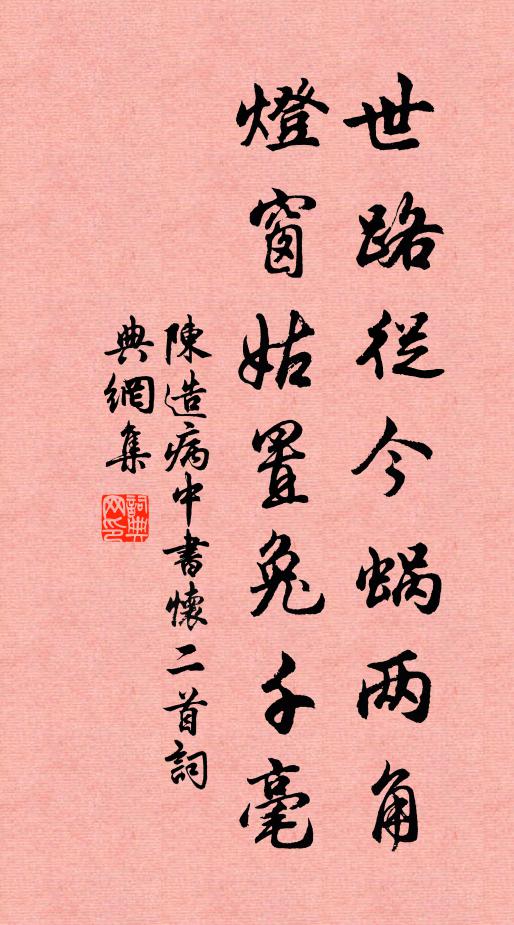 世路從今蝸两角
燈窗姑置兔千毫
陳造病中書懷二首詞
典網集
詞典网印